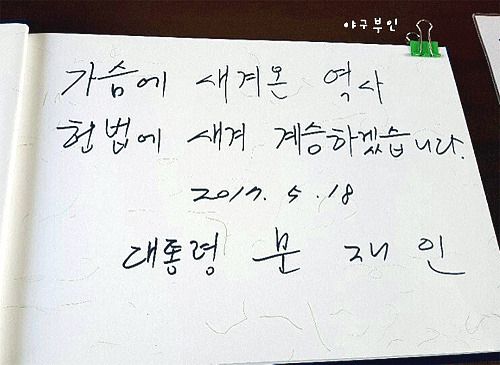 야구부인
가슴에 새겨온 역사
헌법에 새겨 계승하겠습니다.
2017. 5. 18
대통령 문 재 인